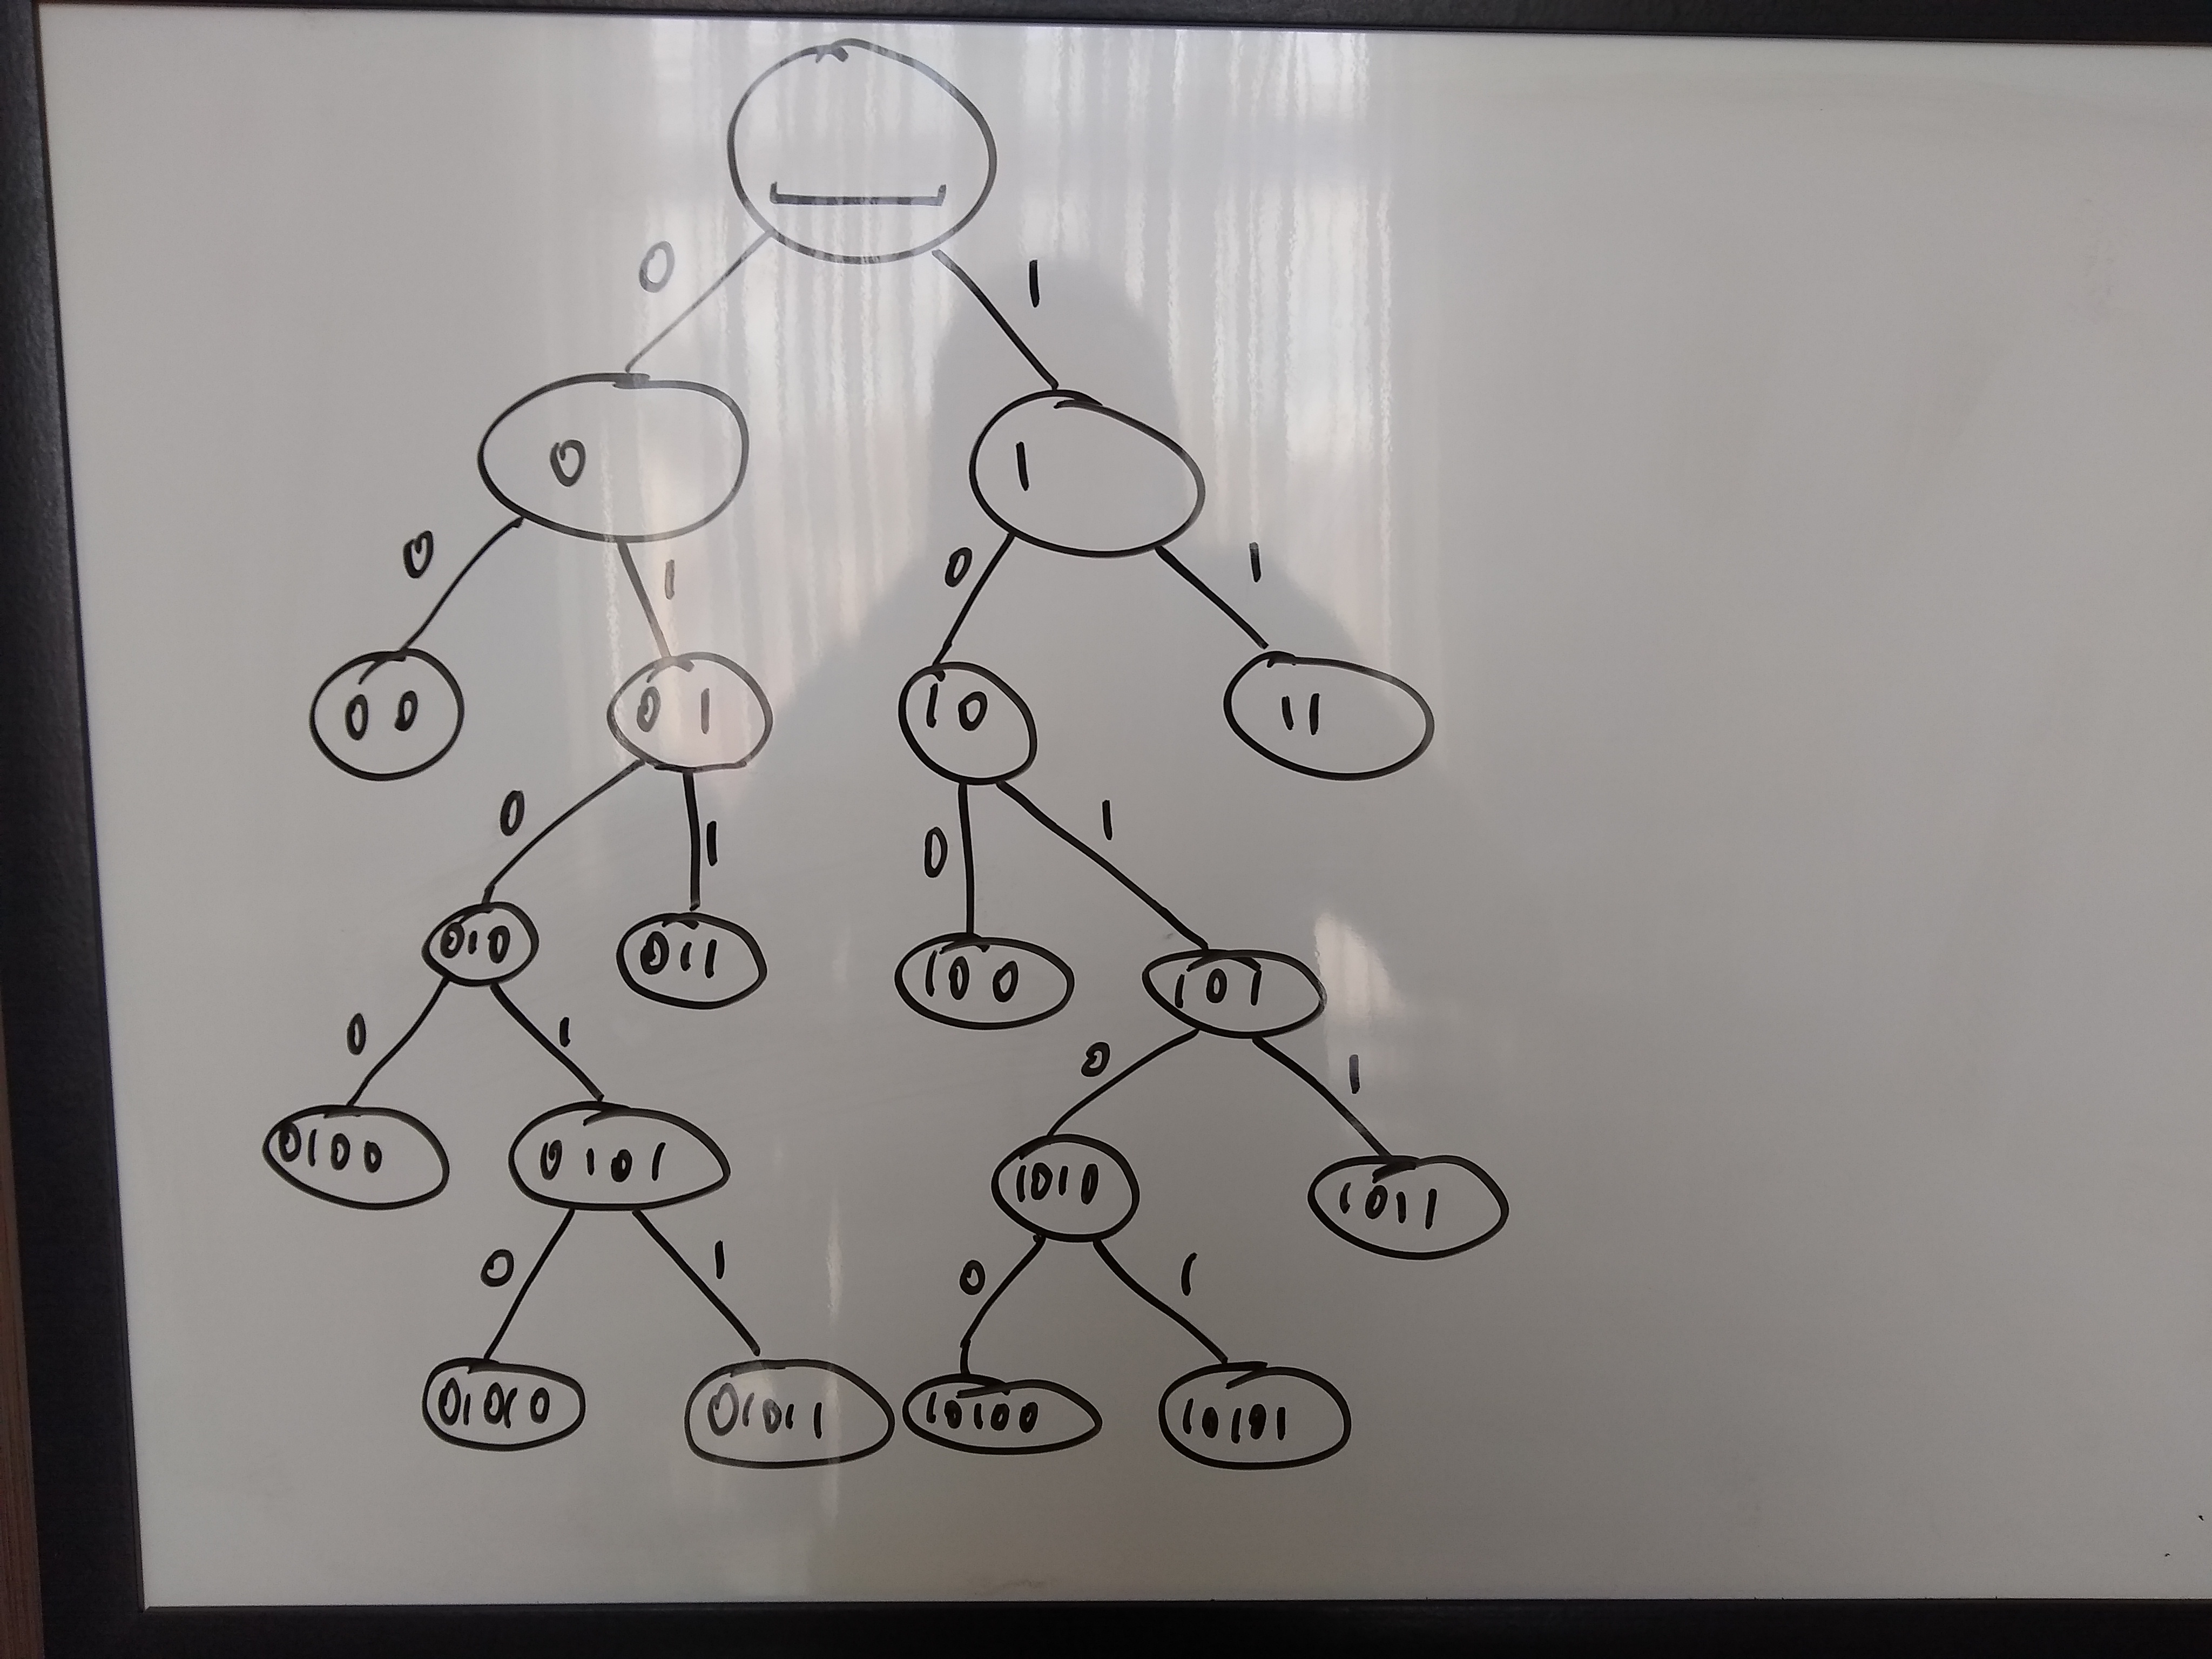 0 1
0 1
0 1 0 1
00 01 10 11
0 1 0 1
010 011 100 101
0 1 0 1
0100 0101 1010 1011
0 1 0 1
01010 01011 10100 10101